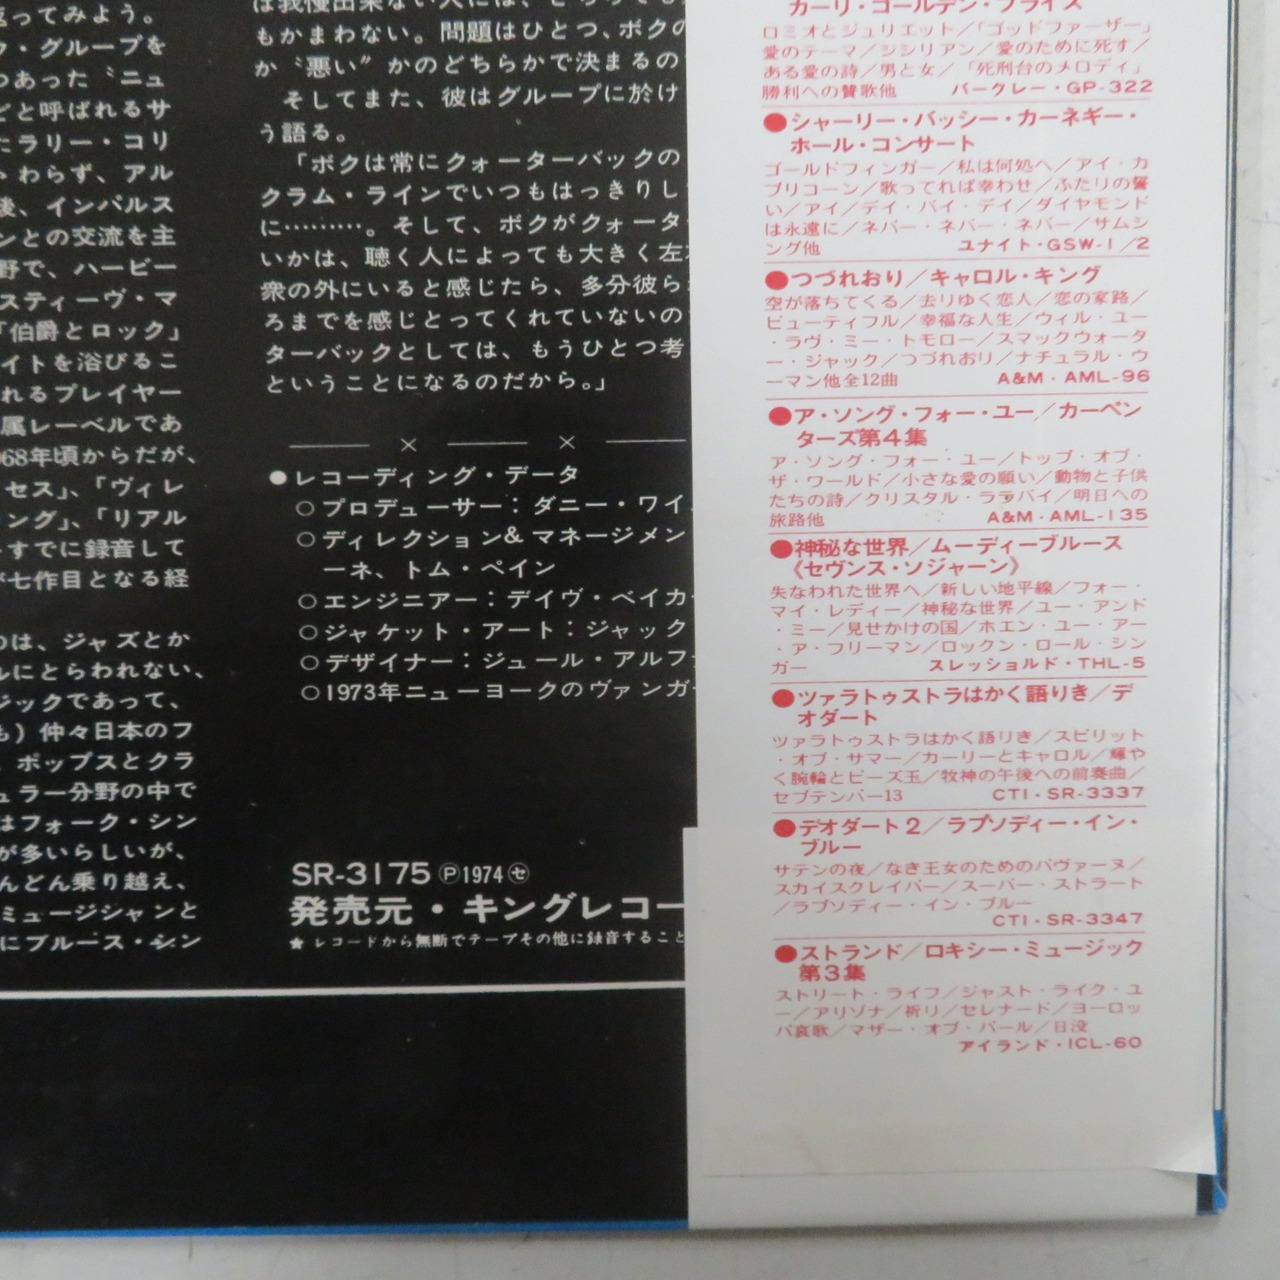 巡ってみよう。
ク・グループを
つあった〝ニュ
どと呼ばれるサ
たラリー・コリ
わらず、アル
後、インパルス
ンとの交流を主
野で、ハービー
スティーヴ・マ
「伯爵とロック」
イトを浴びるこ
れるプレイヤー
属レーベルであ
68年頃からだが、
セス」、「ヴィレ
ング」、「リアル
すでに録音して
七作目となる経
のは、ジャズとか
ルにとらわれない、
ジックであって、
も）仲々日本のフ
ポップスとクラ
ュラー分野の中で
はフォーク・シン
が多いらしいが、
んどん乗り越え、
ミュージシャンと
にブルース・シン
は我慢出来ない人には、
もかまわない。問題はひとつ、ボクの
か〝悪い〟かのどちらかで決まるの
そしてまた、彼はグループに於け
う語る。
「ボクは常にクォーターバックの
クラム・ラインでいつもはっきりし
に………。そして、ボクがクォータ
いかは、聴く人によっても大きく左
衆の外にいると感じたら、多分彼ら
ろまでを感じとってくれていないの
ターバックとしては、もうひとつ考
ということになるのだから。」
●レコーディング・データ
○プロデューサー：ダニー・ワイ
○ディレクション&マネージメン
ーネ、トム・ペイン
○エンジニアー：デイヴ・ベイカ
○ジャケット・アート：ジャック
○デザイナー：ジュール・アルフ
○1973年ニューヨークのヴァンガ
SR-3175 Ⓟ1974 ㋝
発売元・キングレコー
★レコードから無断でテープその他に録音すること
カーリ・ゴールデン・プライス
ロミオとジュリエット／「ゴッドファーザー」
愛のテーマ／シシリアン／愛のために死す／
ある愛の詩／男と女／「死刑台のメロディ」
勝利への賛歌他 バークレー・GP-322
●シャーリー・バッシー・カーネギー・
ホール・コンサート
ゴールドフィンガー／私は何処へ／アイ・カ
プリコーン／歌ってれば幸わせ／ふたりの誓
い／アイ／デイ・バイ・デイ／ダイヤモンド
は永遠に／ネバー・ネバー・ネバー／サムシ
ング他 ユナイト・GSW-1／2
●つづれおり／キャロル・キング
空が落ちてくる／去りゆく恋人／恋の家路／
ビューティフル／幸福な人生／ウィル・ユー
・ラヴ・ミー・トモロー／スマックウォータ
ー・ジャック／つづれおり／ナチュラル・ウ
ーマン他全12曲 A&M・AML-96
●ア・ソング・フォー・ユー／カーペン
ターズ第4集
ア・ソング・フォー・ユー／トップ・オブ・
ザ・ワールド／小さな愛の願い／動物と子供
たちの詩／クリスタル・ララバイ／明日への
旅路他 A&M・AML-135
●神秘な世界／ムーディーブルース
《セヴンス・ソジャーン》
失なわれた世界へ／新しい地平線／フォー・
マイ・レディー／神秘な世界／ユー・アンド
・ミー／見せかけの国／ホエン・ユー・アー
・ア・フリーマン／ロックン・ロール・シン
ガー スレッショルド・THL-5
●ツァラトゥストラはかく語りき／デ
オダート
ツァラトゥストラはかく語りき／スピリット
・オブ・サマー／カーリーとキャロル／輝や
く腕輪とビーズ玉／牧神の午後への前奏曲／
セプテンバー13 CTI・SR-3337
●デオダート2／ラプソディー・イン・
ブルー
サテンの夜／なき王女のためのパヴァーヌ／
スカイスクレイパー／スーパー・ストラート
／ラプソディー・イン・ブルー
CTI・SR-3347
●ストランド／ロキシー・ミュージック
第3集
ストリート・ライフ／ジャスト・ライク・ユ
ー／アリゾナ／祈り／セレナード／ヨーロッ
パ哀歌／マザー・オブ・パール／日没
アイランド・ICL-60